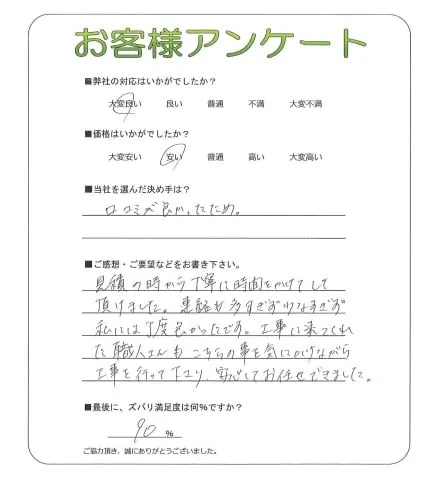 お客様アンケート
■弊社の対応はいかがでしたか？
大変良い 良い 普通 不満 大変不満
■価格はいかがでしたか？
大変安い 安い 普通 高い 大変高い
■当社を選んだ決め手は？
口コミが良かったため。
■ご感想・ご要望などをお書き下さい。
見積の時から丁寧に時間をかけてして
頂けました。連絡が多すぎず少なすぎず
私には丁度良かったです。工事に来てくれ
た職人さんも こちらの事を気にかけながら
工事を行って下さり、安心してお任せできました。
■最後に、ズバリ満足度は何％ですか？
90 ％
ご協力頂き、誠にありがとうございました。